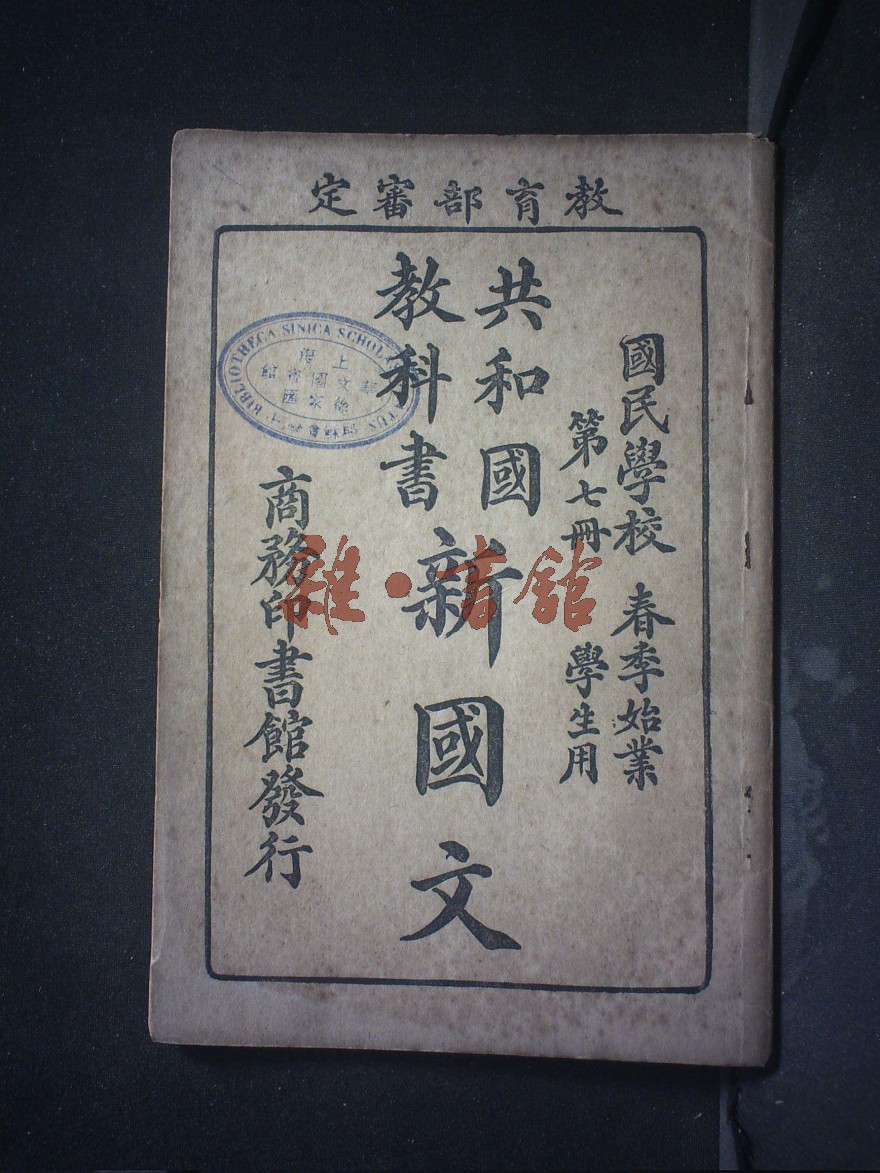 教育部審定
國民學校 春季始業
第七冊 學生用
共和國
教科書
新國文
商務印書館發行
BIBLIOTHECA SINICA SCHOL
雜·書館